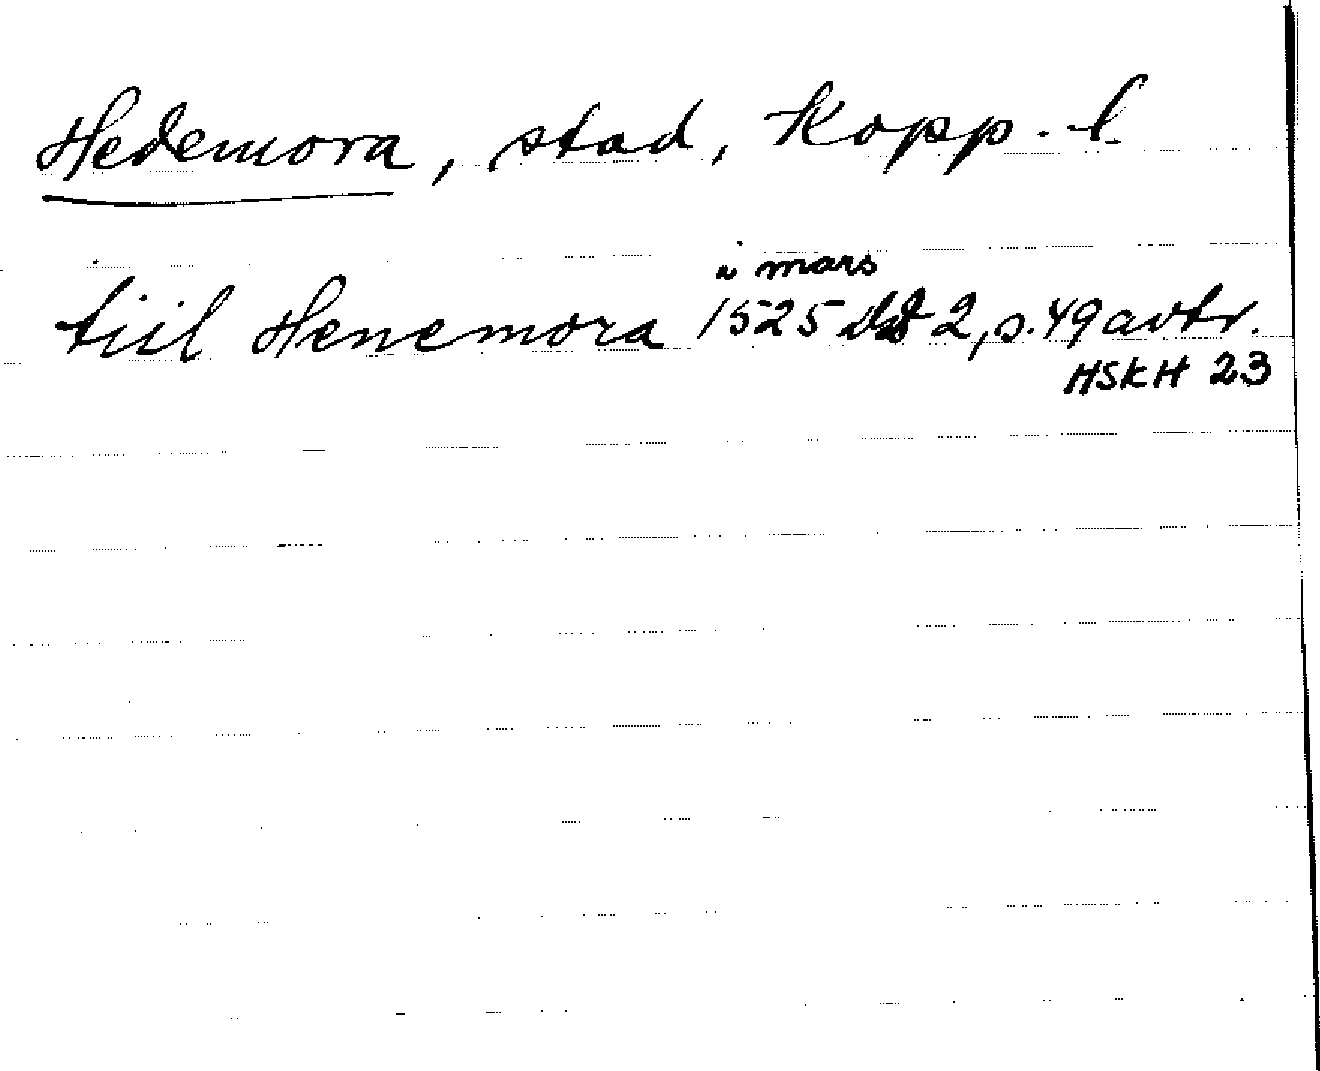 Hedemora, stad, Kopp. l.
i mars
tiil Henemora 1525 2, s. 49 avtr.
HSKH 23